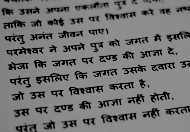 कि उसने अपना एकलौता पुत्र दे
ताकि जो कोई उस पर विश्वास करे वह
परंतु अनंत जीवन पाए।
परमेश्वर ने अपने पुत्र को जगत में इसलि
भेजा कि जगत पर दण्ड की आज्ञा दे,
परंतु इसलिए कि जगत उसके द्वारा उ
जो उस पर विश्वास करता है,
उस पर दण्ड की आज्ञा नहीं होती,
परंतु जो उस पर विश्वास नहीं करता